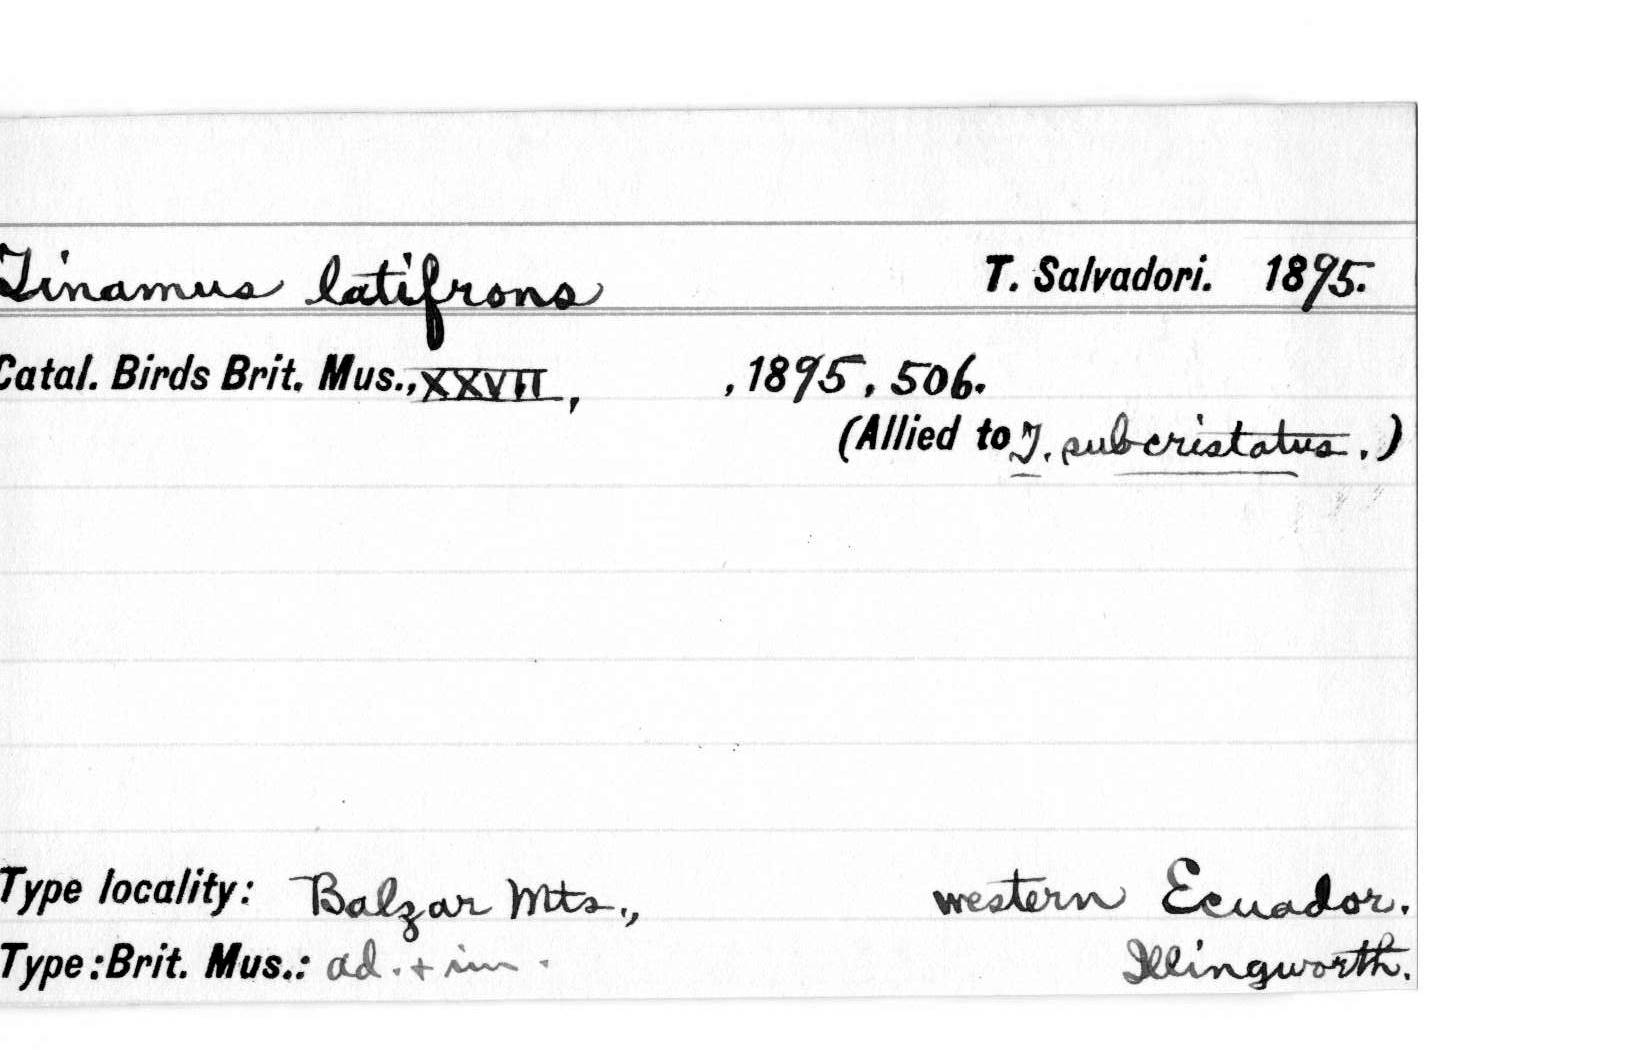 Tinamus latifrons T. Salvadori. 1895.
Catal. Birds Brit. Mus., XXVII, , 1895, 506.
(Allied to T. subcristatus.)
Type locality: Balzar Mts., western Ecuador.
Type: Brit. Mus.: ad. + im. Illingworth.